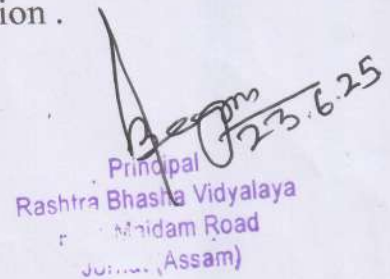 ion .
Begum
23.6.25
Principal
Rashtra Bhasha Vidyalaya
Maidam Road
(Assam)